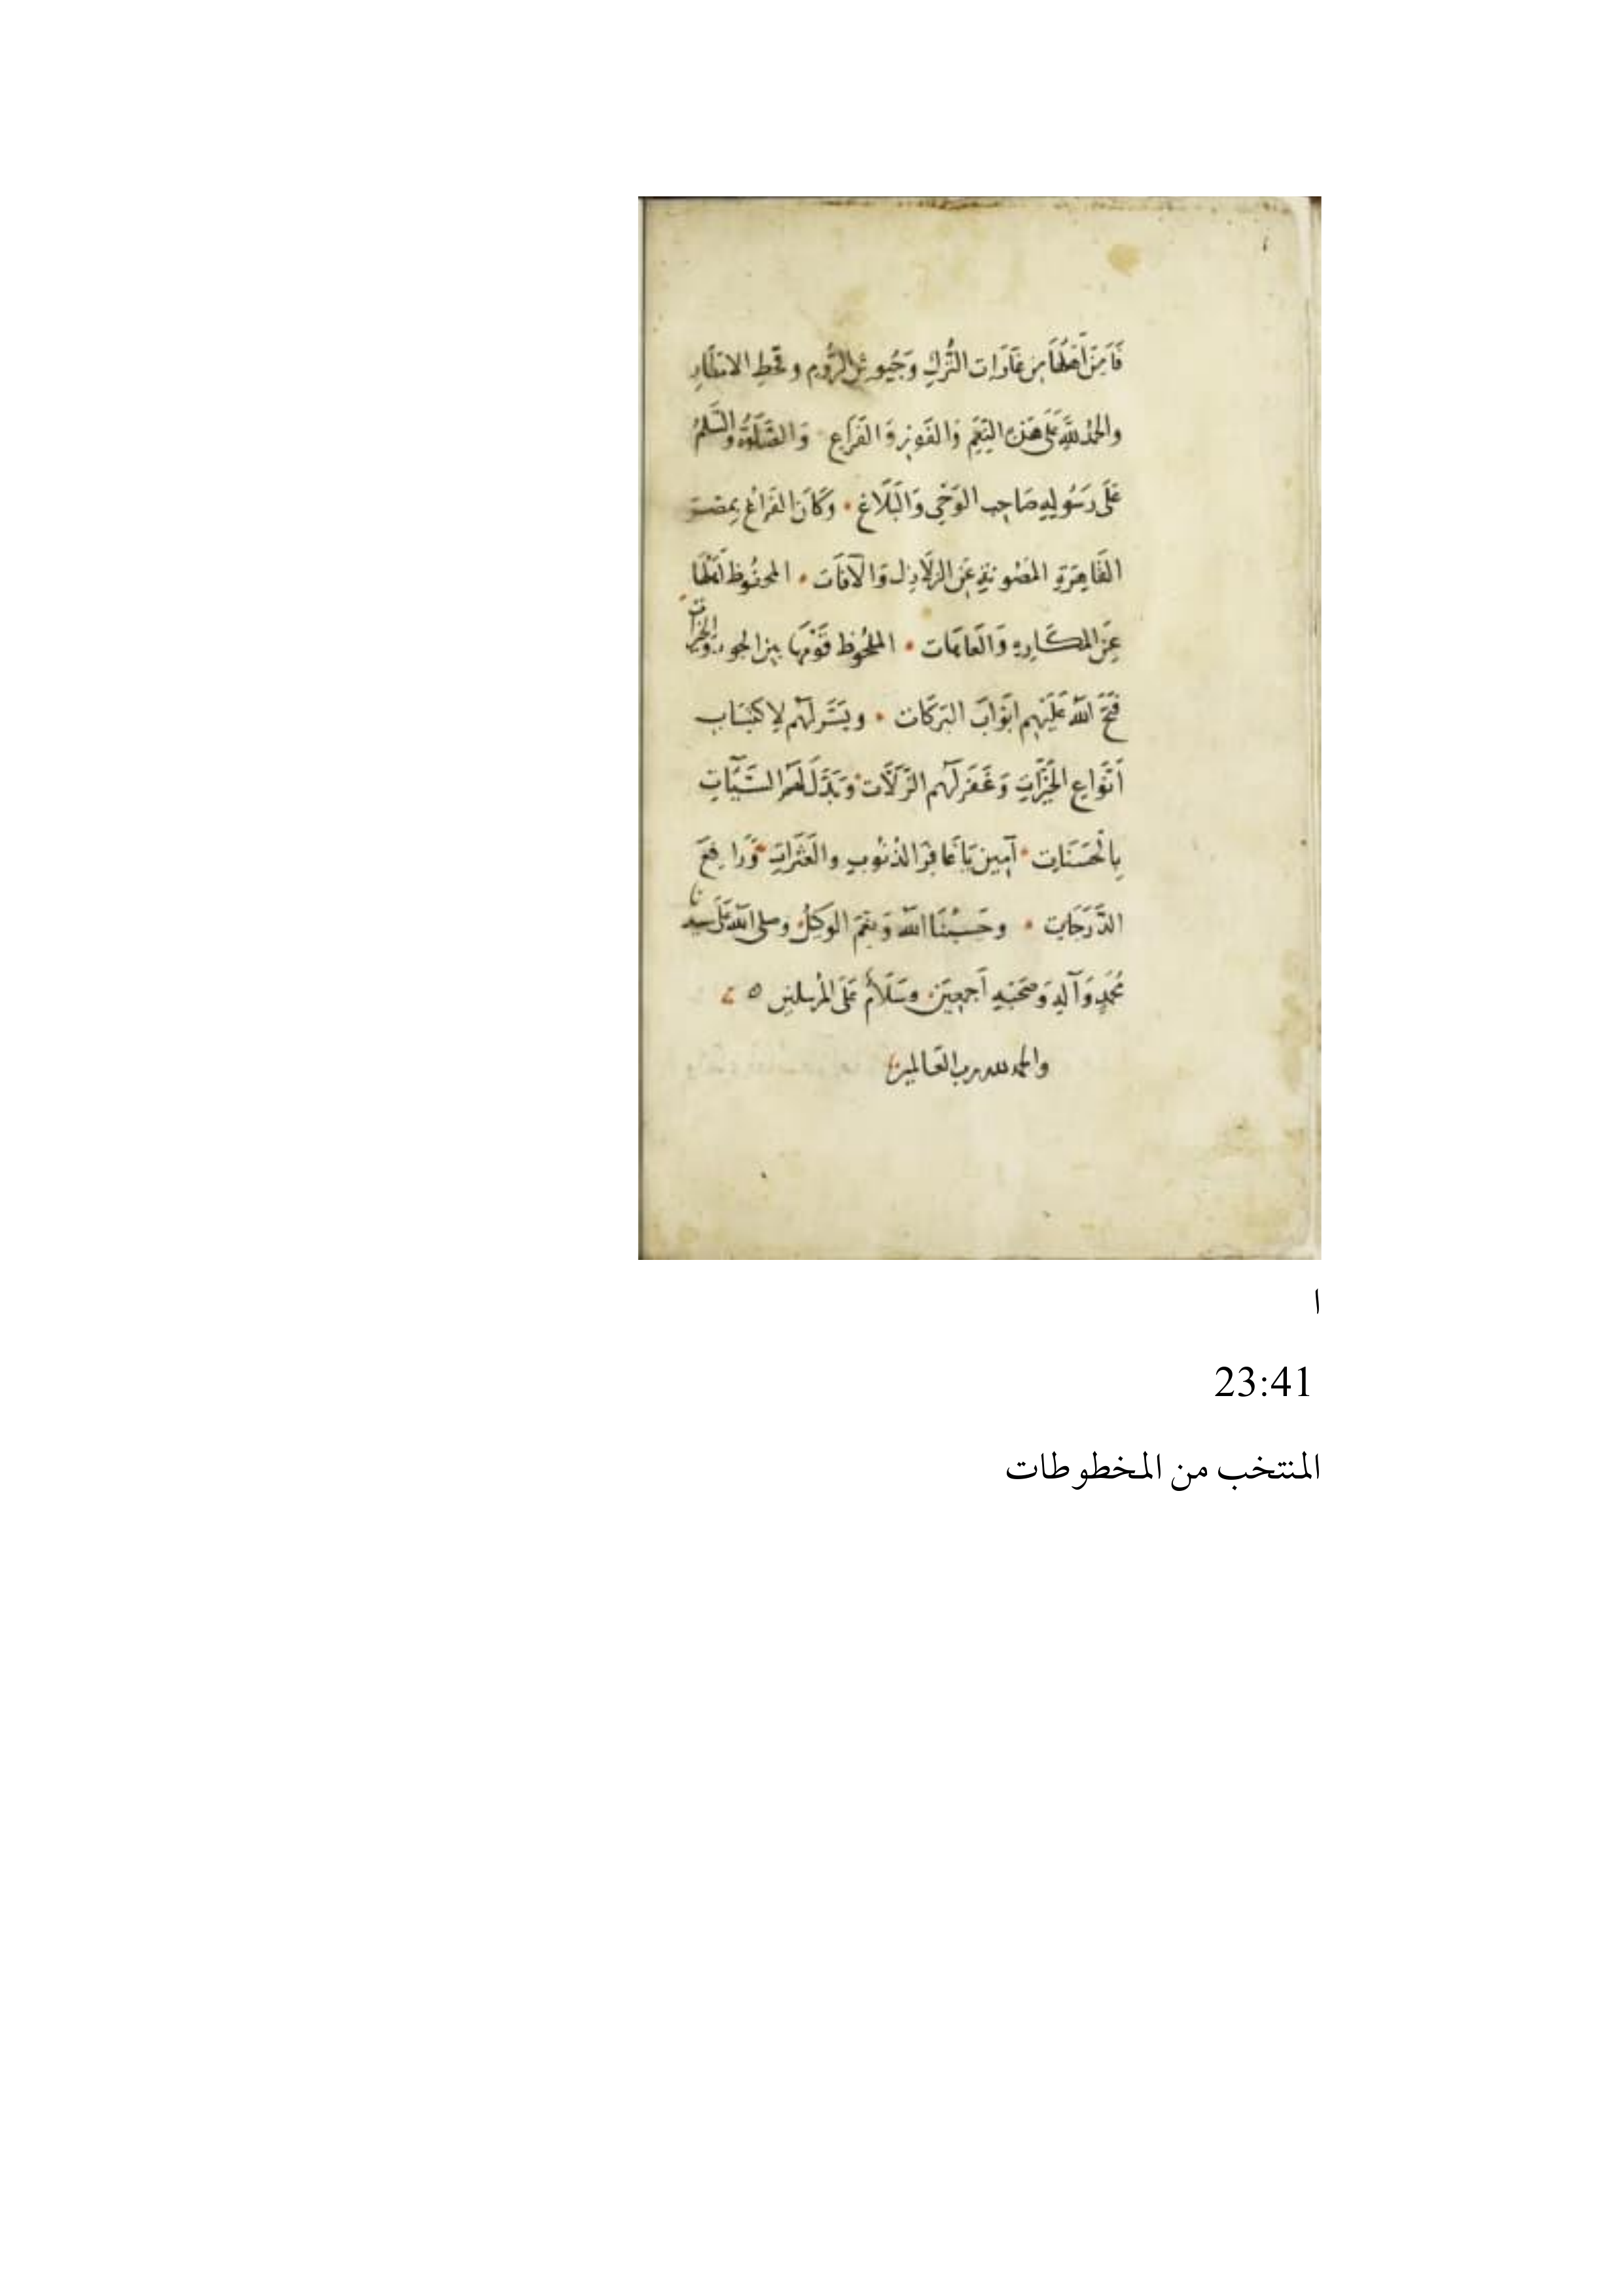 فَأَمِنَ أَهْلُهَا مِن غَارَات التُّركِ وَجُيوشِ الرُّومِ وقَحطِ الامطَارِ
والحمدُ للَّهِ عَلَى هَذِه النِّعَمِ وَالفَوزِ وَالفَرَاغِ وَالصَّلَوةُ والسَّلمُ
عَلَى رَسُولِهِ صَاحِبِ الوَحْيِ وَالبَلَاغِ • وَكَانَ الفَرَاغُ بِمِصْر
القَاهِرَةِ المَصُونَةِ عَنِ الزلَازِلِ وَالآفَات • المحفُوظ أَهْلُهَا
عَنِ المكَارِهِ وَالعَاهَات • الملحُوظ قَوْمُهَا بِالجودِ والخَيْرَات
فَتَحَ اللَّه عَلَيْهِم ابْوَابَ البَرَكَات • ويَسَّرَ لَهُم لِاكتِسَابِ
أَنْوَاعِ الخَيْرَاتِ وَغَفَرَ لَهُم الزَّلَّات وَبَدَّلَ لَهُم السَّيِّئَاتِ
بِالْحَسَنَاتِ • آمِين يَا غَافِرَ الذنُوبِ والعَثَرَاتِ وَرَافِعَ
الدَّرَجَات • وحَسْبُنَا اللَّه وَنِعْمَ الوَكيلُ وصلى اللَّه عَلَى سيدنا
مُحَمَّدٍ وَآلِهِ وَصَحْبِهِ أَجمعِينَ وَسَلَامٌ عَلَى المُرْسلين
والحمد لله رب العَالمين
ا
23:41
المنتخب من المخطوطات